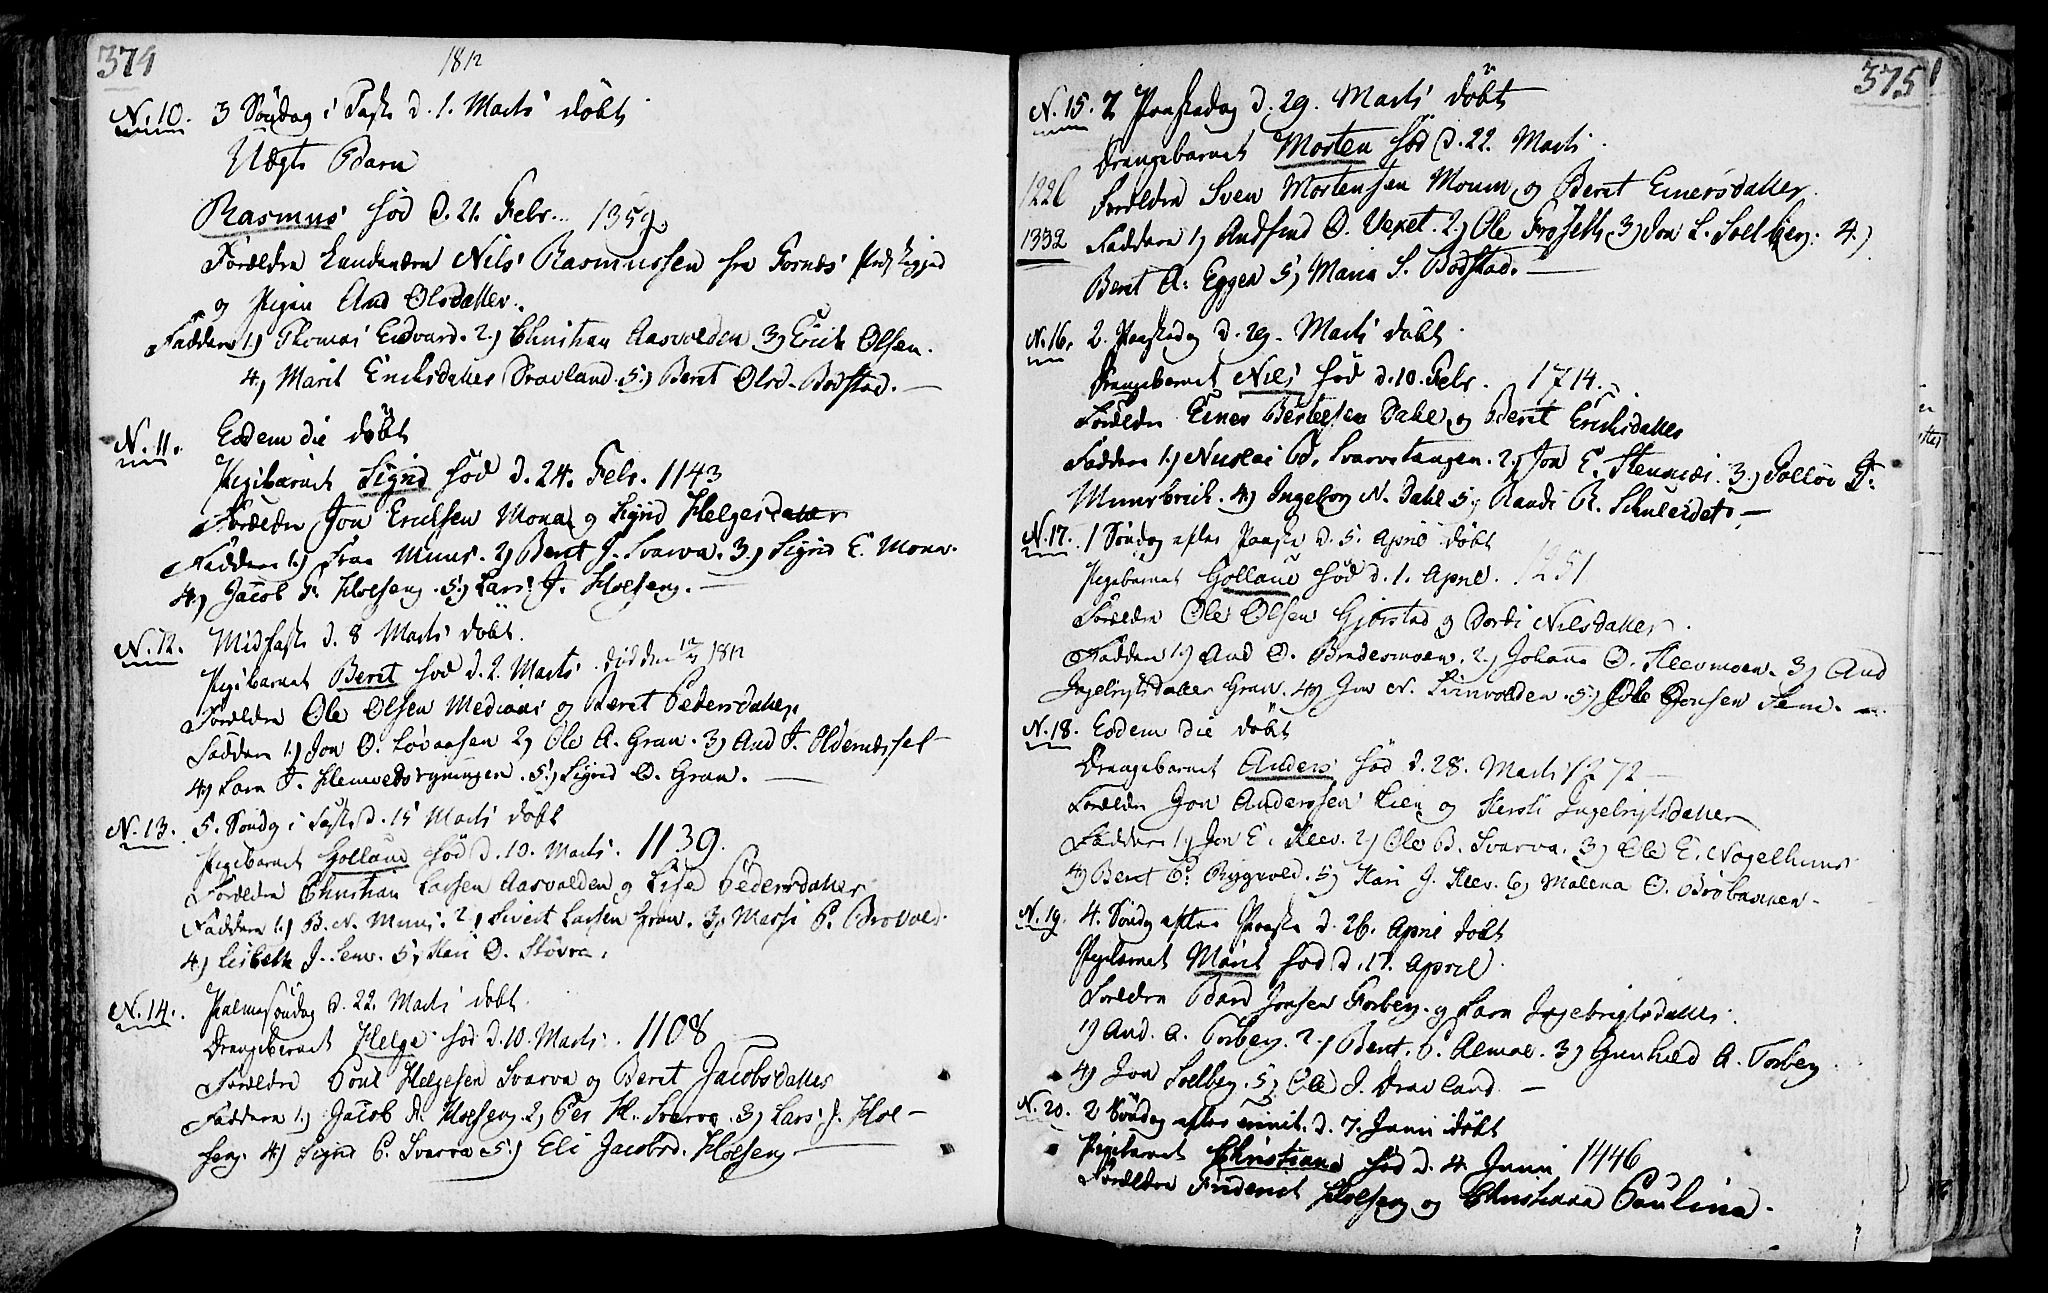 374
1812
N. 10. 3 Søndag i Faste d. 1. Marts døbt
Uægte Barn
Rasmus fød d. 21. Febr. 1359
Forældre Landværn Nils Rasmussen fra Fosnæs
og Pigen And Olsdatter.
Faddere 1) Thomas Eidvard. 2) Christian Aasvolden 3) Erich Olsen.
4) Marit Erichsdatter Dravland. 5) Beret Olsd. Bodstad.
N. 11. Eodem die døbt
Pigebarnet Sigrid fød d. 24. Febr. 1143
Forældre Jon Erichsen Mona og Sigrid Helgesdatter
Faddere 1) Fraa Muus. 2) Beret J. Svarva. 3) Sigrid E. Mona.
4) Jacob F. Holseng. 5) Lars J. Holseng.
N. 12. Midfaste d. 8 Marts døbt.
Pigebarnet Beret fød d. 2. Marts. død den 1812
Forældre Ole Olsen Mediaas og Beret Pedersdatter.
Faddere 1) Jon O. Løvaasen 2) Ole A. Gran. 3) And J. Oldernæsset
4) Sara J. Klemvedsrygningen. 5) Sigrid O. Gran.
N. 13. 5. Søndg i Faste d. 15 Marts døbt
Pigebarnet Gollaug fød d. 10. Marts. 1139.
Forældre Christian Larsen Aasvolden og Lisa Pedersdatter
Faddere 1) B. N. Muus. 2) Sivert Larsen Gran. 3) Massi P. Brovold.
4) Lisbeth J. Sem. 5) Kari O. Støvra.
N. 14. Palmesøndag d. 22. Marts døbt.
Drengebarnet Helge fød d. 10. Marts. 1108
Forældre Poul Helgesen Svarva og Beret Jacobsdatter
Faddere 1) Jacob A. Holseng. 2) Per H. Svarva. 3) Lars J. Hol-
seng. 4) Sigrid P. Svarva 5) Eli Jacobsd. Holseng
375
N. 15. 2 Paaskedag d. 29. Marts døbt
Drengebarnet Morten fød d. 22. Marts.
1226 Forældre Sven Mortensen Moum og Beret Einersdatter.
1332 Faddere 1) Andfind O. Vexet. 2) Ole Frøseth 3) Jon L. Solberg. 4)
Beret A. Eggen 5) Maria S. Bodstad.
N. 16. 2. Paaskedag d. 29. Marts døbt.
Drengebarnet Nils fød d. 10. Febr. 1714.
Forældre Einer Bertelsen Dahl og Beret Erichsdatter
Faddere 1) Nicolai P. Svarvetangen. 2) Jon E. Stennæs. 3) Tolløv J.
Muusbrech. 4) Ingeborg N. Dahl 5) Randi R. Schuleidet.
N. 17. 1 Søndag efter Paaske d. 5. April døbt
Pigebarnet Gollaug fød d. 1. April. 1251
Forældre Ole Olsen Gjørstad og Dordi Nilsdatter.
Faddere 1) And O. Brademoen. 2) Johanna O. Kleevmoen. 3) And
Ingebrigtsdatter Gran. 4) Jon N. Svinvolden. 5) Ole Jonsen Sem.
N. 18. Eodem die døbt
Drengebarnet Anders fød d. 28. Marts 1272
Forældre Jon Anderssen Lien og Kersti Ingebrigtsdatter
Faddere 1) Jon E. Kleev. 2) Ole B. Svarva. 3) Ole E. Nagelhuus
4) Beret P. Rygvold. 5) Kari J. Kleev. 6) Malena O. Brøbakken
N. 19. 4. Søndag efter Paaske d. 26. April døbt
Pigebarnet Marit fød d. 17. April.
Forældre Bard Jonsen Forberg og Sara Ingebrigtsdatter.
1) And. A. Forberg. 2) Beret. P. Almoe. 3) Gunhild A. Forberg
4) Jon Solberg. 5) Ole J. Dravland.
N. 20. 2 Søndag efter trinit. d. 7. Junii døbt
Pigebarnet Christiana fød d. 4. Junii 1446
Forældre Friderich Holseng og Christiana Paulina.